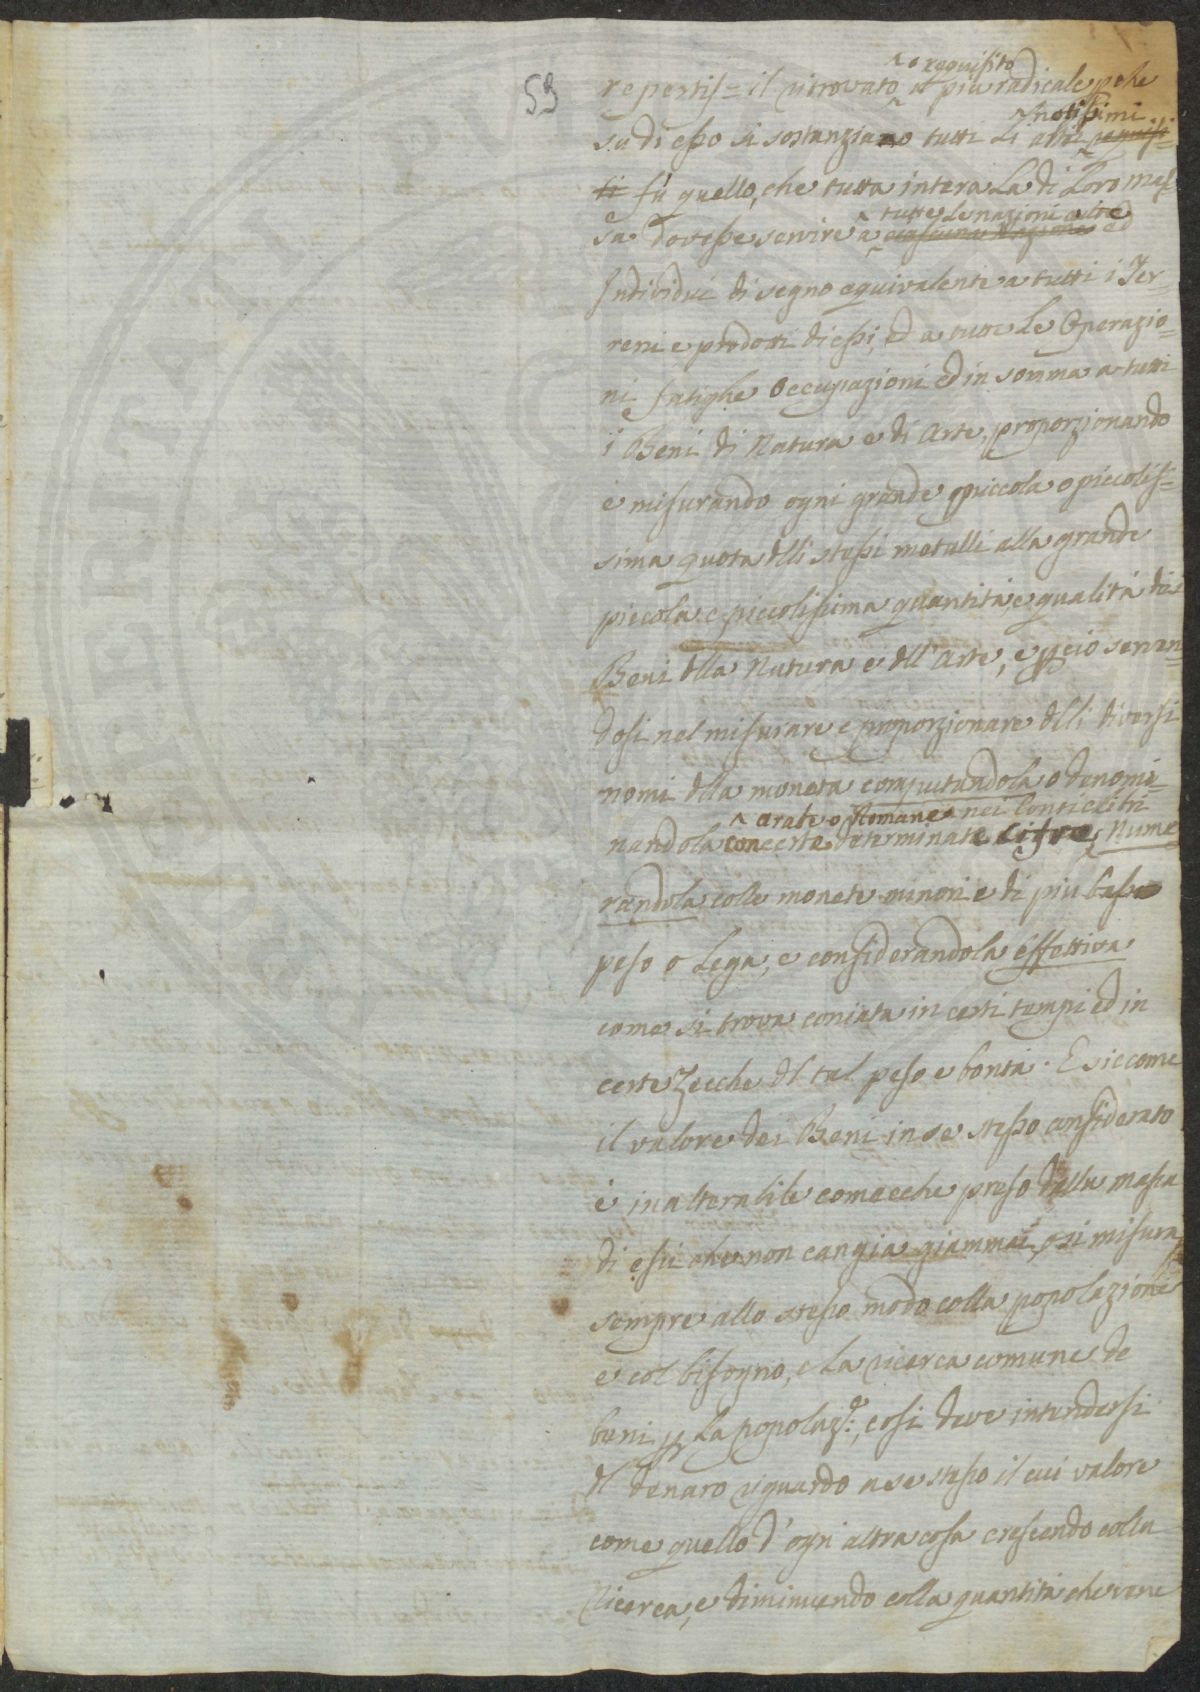 59
^ o requisito
repertis = il ritrovato il più radicale pche
^ notissimi
su di esso si sostanziano tutti li altri requisi=
ti fù quello, che tutta intera La di Loro mas=
tutte Le nazioni colte
sa dovesse servire à ciascuna Nazione ed
Individui di segno equivalente a tutti i Ter=
reni e prodotti di essi, ed a tutte Le Operazio=
ni fatighe Occupazioni ed in somma a tutti
i Beni di Natura e di Arte, proporzionando
e misurando ogni grande piccola o piccolis=
sima quota dlli stessi metalli alla grande
piccola e piccolissima quantità, e qualità dei
Beni dlla Natura e dll'Arte, e pciò serven=
dosi nel misurare e proporzionare dlli diversi
nomi dlla moneta computandola o denomi=
^ arabe o Romane nei Conti e libri
nandola con certe determinate cifre, Nume
randola colle monete minori e di più basso
peso o Lega, e considerandola effettiva
come si trova coniata in certi tempi ed in
certe Zecche dl tal peso e bontà. E siccome
il valore dei Beni in se stesso considerato
è inalterabile comecche preso dalla massa
di essi che non cangia giammai, o si misura
sempre allo stesso modo colla popolazione
e col bisogno, e La ricerca comune de
beni p La popolaz.e, cosi deve intendersi
dl denaro riguardo a se stesso il cui valore
come quello d'ogni altra cosa crescendo colla
Ricerca, e diminuendo colla quantità che vene